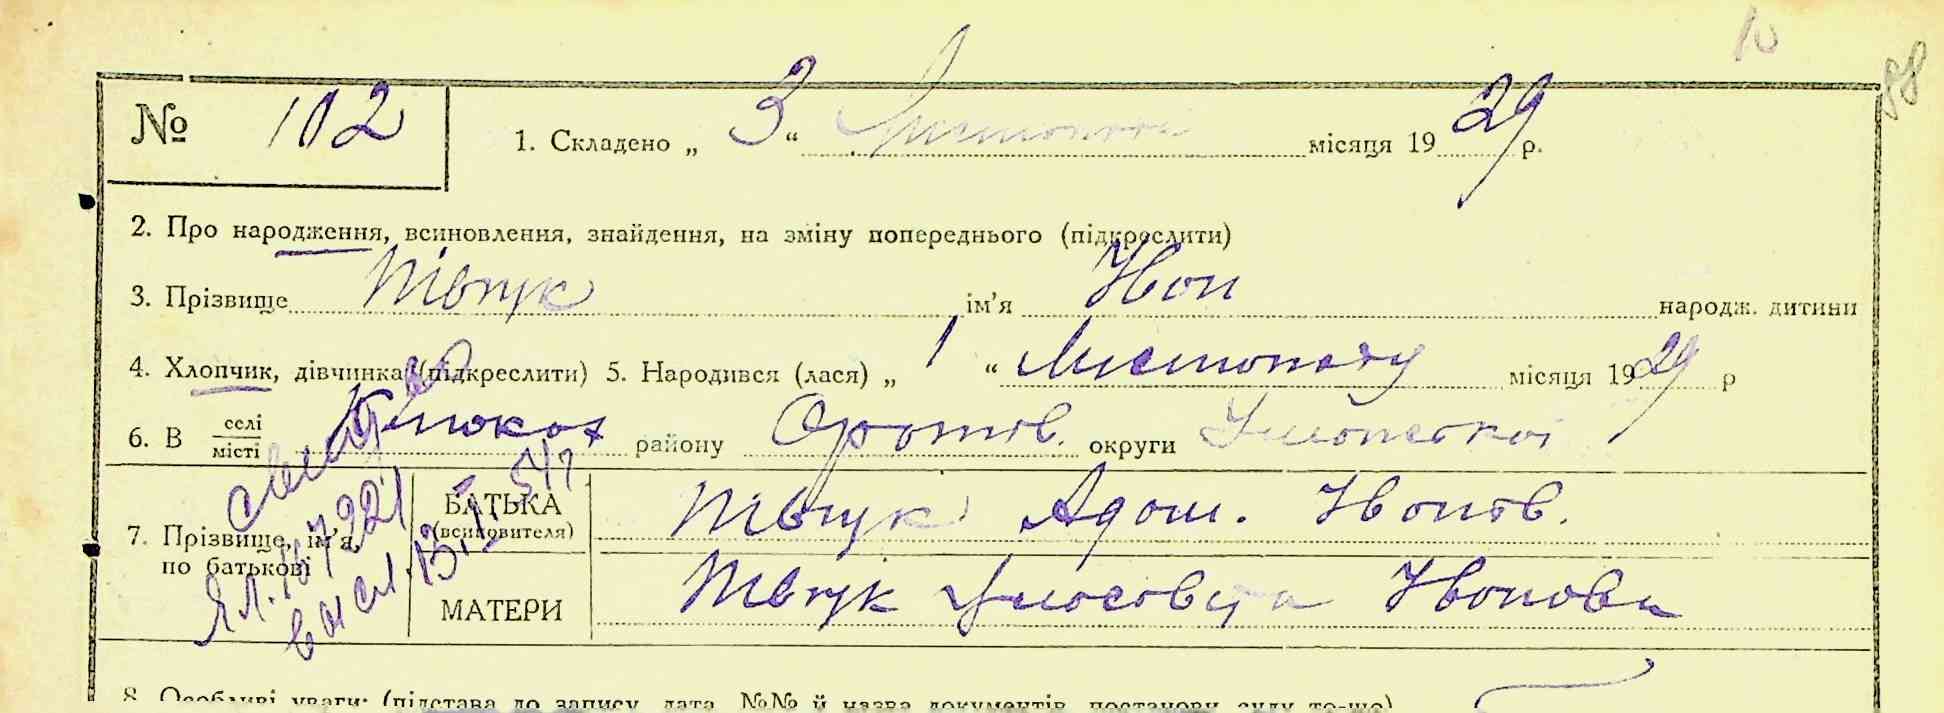 № 102 1. Складено „ 3 “ Листопада місяця 1929 р.
2. Про народження, всиновлення, знайдення, на зміну попереднього (підкреслити)
3. Прізвище Півчук ім'я Іван народж. дитини
4. Хлопчик, дівчинка (підкреслити) 5. Народився (лася) „ 1 “ Листопаду місяця 1929 р
6. В селі місті районy Оратів. округи Уманської
7. Прізвище, ім'я по батькові
БАТЬКА (всиновителя) Півчук Адам. Іванов.
МАТЕРИ Півчук Іванова
выслано
13.I.54
8. Особливі уваги: (підстава до запису, дата, №№ й назва документів, постанови суду то-що)